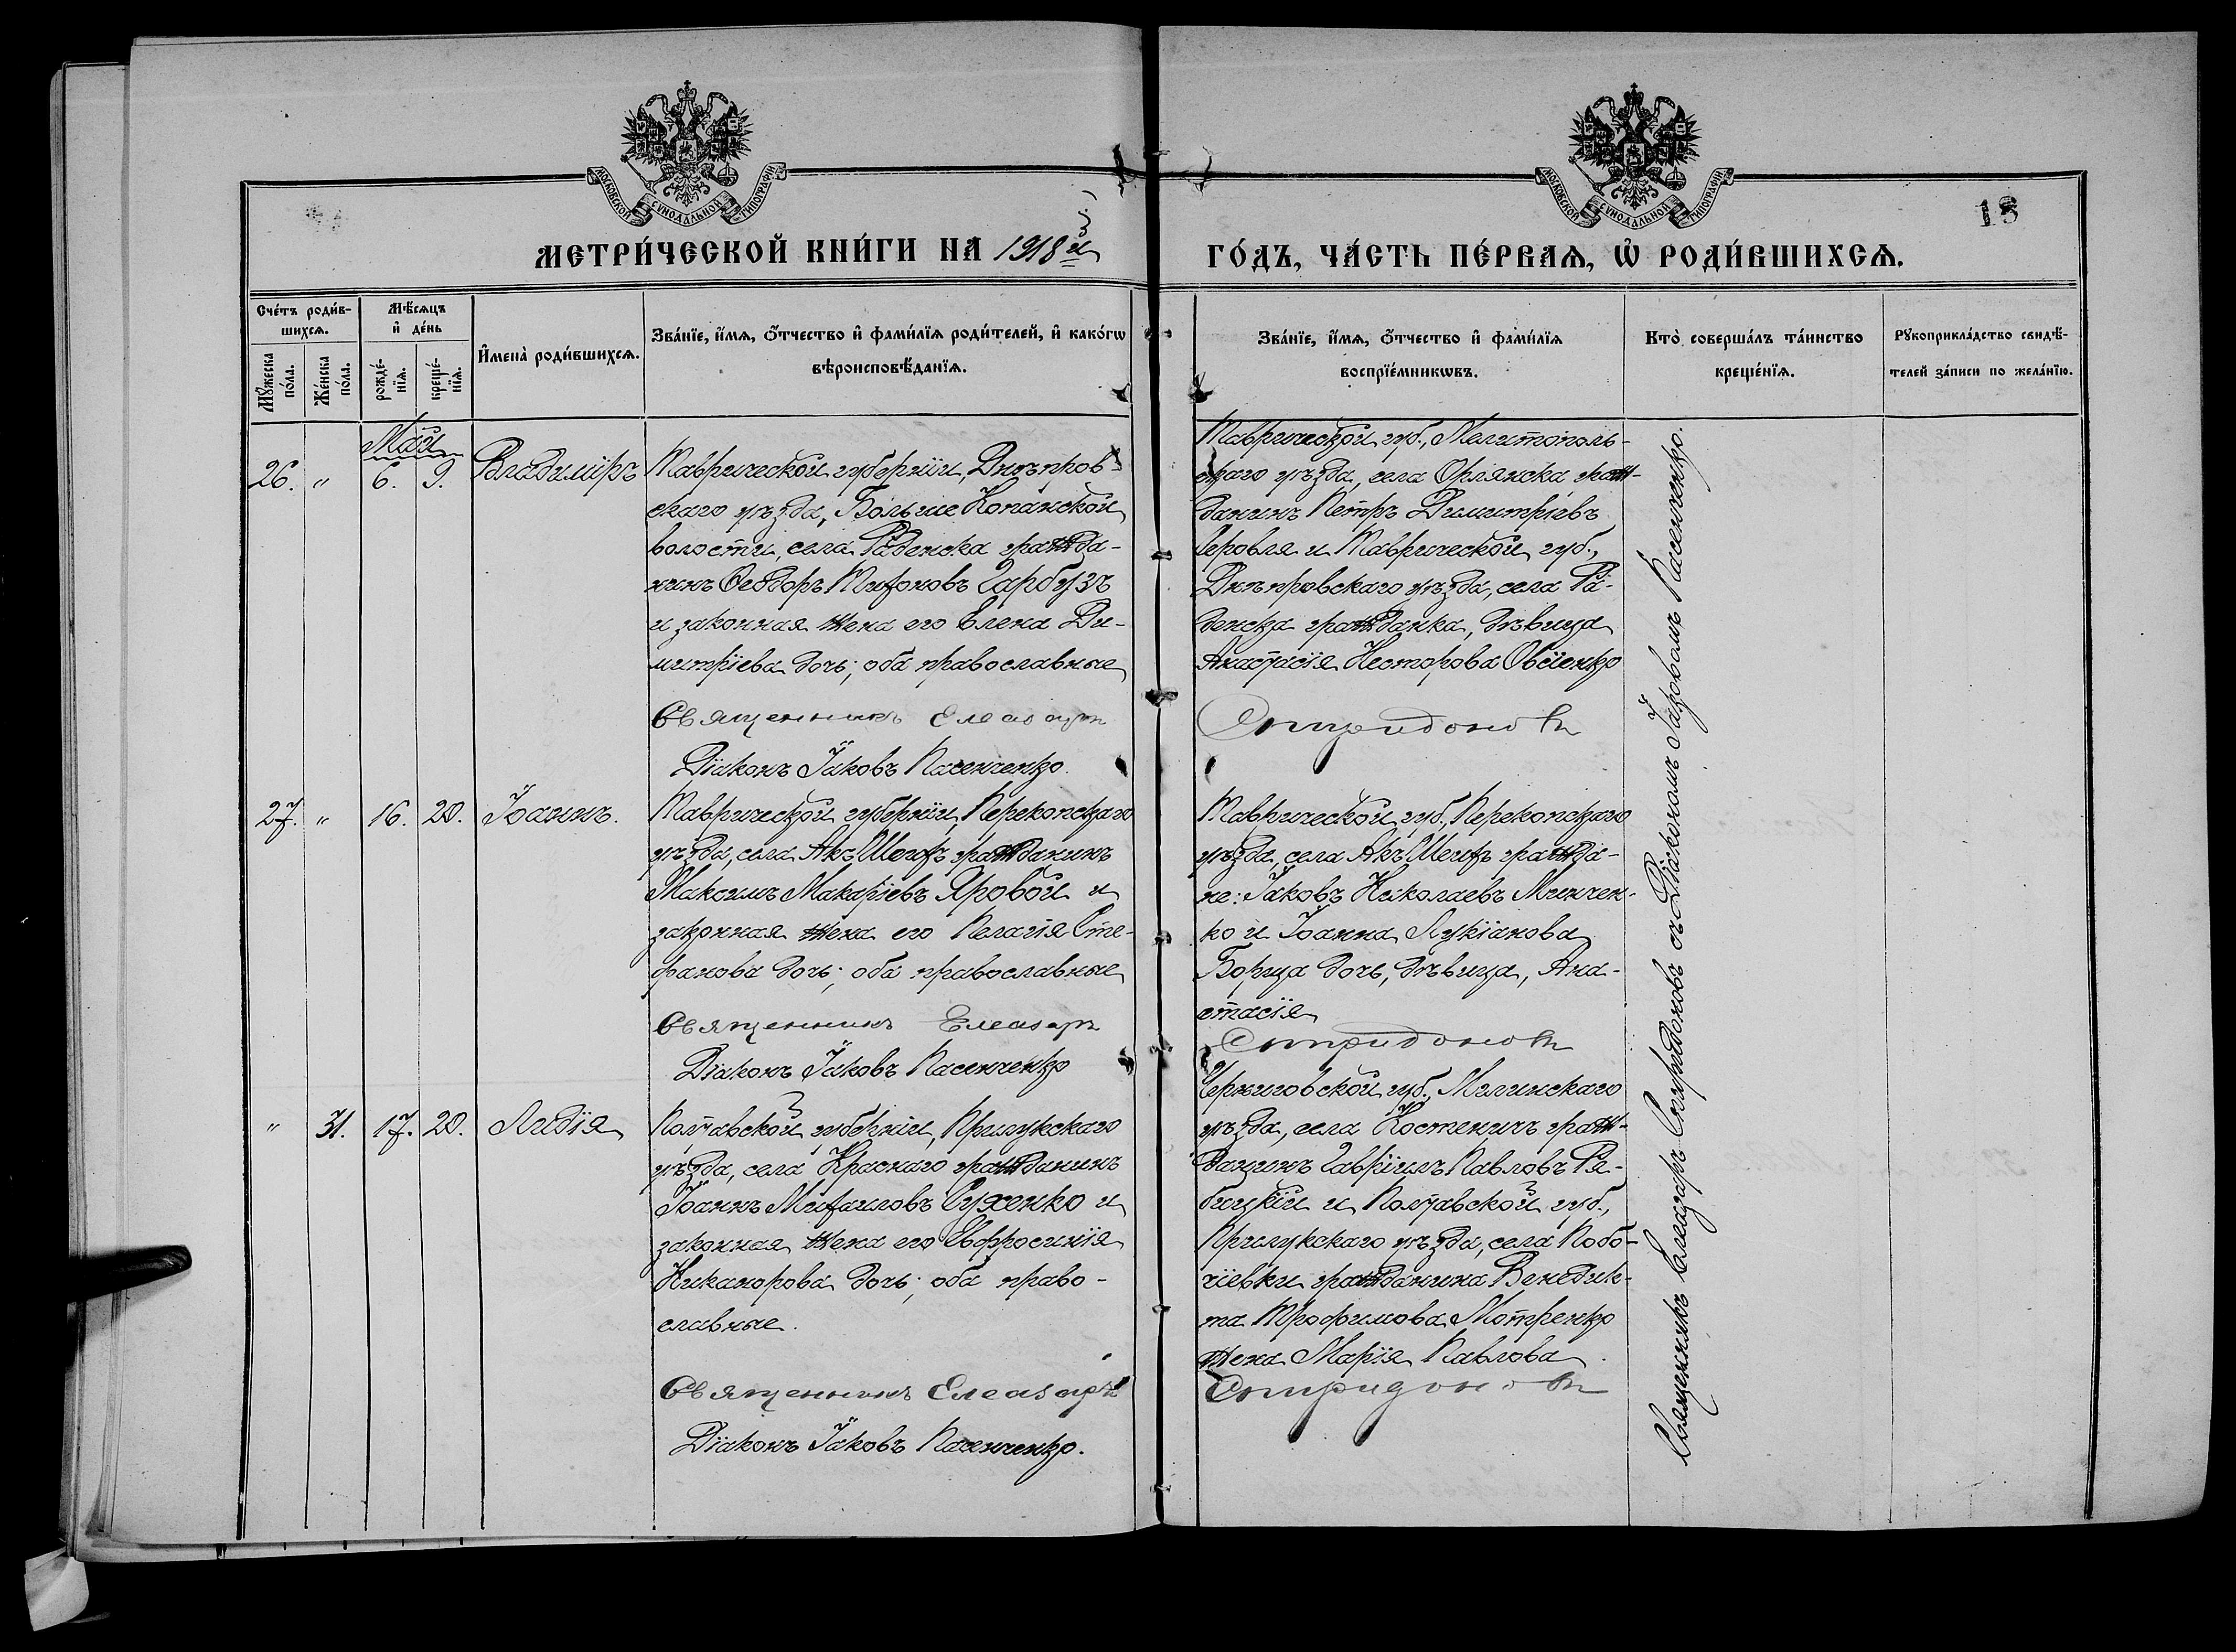 МОСКОВСКОЙ СѴНОДАЛЬНОЙ ТИПОГРАФІИ
МОСКОВСКОЙ СѴНОДАЛЬНОЙ ТИПОГРАФІИ
18
МЕТРИ́ЧЕСКОЙ КНИ́ГИ НА 1918й ГО́ДЪ, ЧА́СТЬ ПЕ́РВАѦ, Ѡ҆ РОДИ́ВШИХСѦ.
Сче́тъ роди́в-
шихсѧ.
Мꙋ́жеска по́ла.
Же́нска по́ла.
Мѣ́сѧцъ
и҆ де́нь
рожде́-
нїѧ.
креще́-
нїѧ.
И҆мена̀ роди́вшихсѧ.
Зва́нїе, и҆́мѧ, ѻ҆́тчество и҆ фами́лїѧ роди́телей, и҆ како́гѡ
вѣроисповѣ́данїѧ.
Зва́нїе, и҆́мѧ, ѻ҆́тчество и҆ фами́лїѧ
воспрїе́мникѡвъ.
Кто̀ соверша́лъ та́инство
креще́нїѧ.
Рꙋкоприкла́дство свидѣ́-
телей за́писи по жела́нїю.
Май
26. " 6. 9. Владиміръ
Таврической губерніи, Днѣпров-
скаго уѣзда, Больше Копанской
волости, села Раденска гражда-
нинъ Ѳеодоръ Тихоновъ Гарбузъ
и законная жена его Елена Ди-
митріева дочь; оба православные
Священникъ Елеазаръ
Діаконъ Іаковъ Пасенченко.
Таврической губ., Мелитополь-
скаго уѣзда, села Орлянска граж-
данинъ Петръ Димитріевъ
Церовля и Таврической губ.,
Днѣпровскаго уѣзда, села Ра-
денска гражданка, дѣвица
Анастасія Несторова Овсіенко
Спиридоновъ
27. " 16. 20. Іоаннъ.
Таврической губерніи, Перекопскаго
уѣзда, села Акъ Шеихъ гражданинъ
Максимъ Макаріевъ Яровой и
законная жена его Пелагія Сте-
фанова дочь; оба православные
Священникъ Елеазаръ
Діаконъ Іаковъ Пасенченко
Таврической губ., Перекопскаго
уѣзда, села Акъ Шеихъ гражда-
не: Іаковъ Николаевъ Минчен-
ко и Іоанна Лукіанова
Борща дочь, дѣвица, Ана-
стасія
Спиридоновъ
" 31. 17. 20. Лидія
Полтавской губерніи, Прилукскаго
уѣзда, села Краснаго гражданинъ
Іоаннъ Михаиловъ Сухенко и
законная жена его Евфросинія
Никанорова дочь; оба право-
славные.
Священникъ Елеазаръ
Діаконъ Іаковъ Пасенченко.
Черниговской губ., Мглинскаго
уѣзда, села Костеничъ граж-
данинъ Гавріилъ Павловъ Ря-
бицкій и Полтавской губ.,
Прилукскаго уѣзда, села
гражданина Венедик-
та Трофимова Мотренко
жена Марія Павлова.
Спиридоновъ
Священникъ Елеазаръ Спиридоновъ съ Діакономъ Іаковомъ Пасенченко.